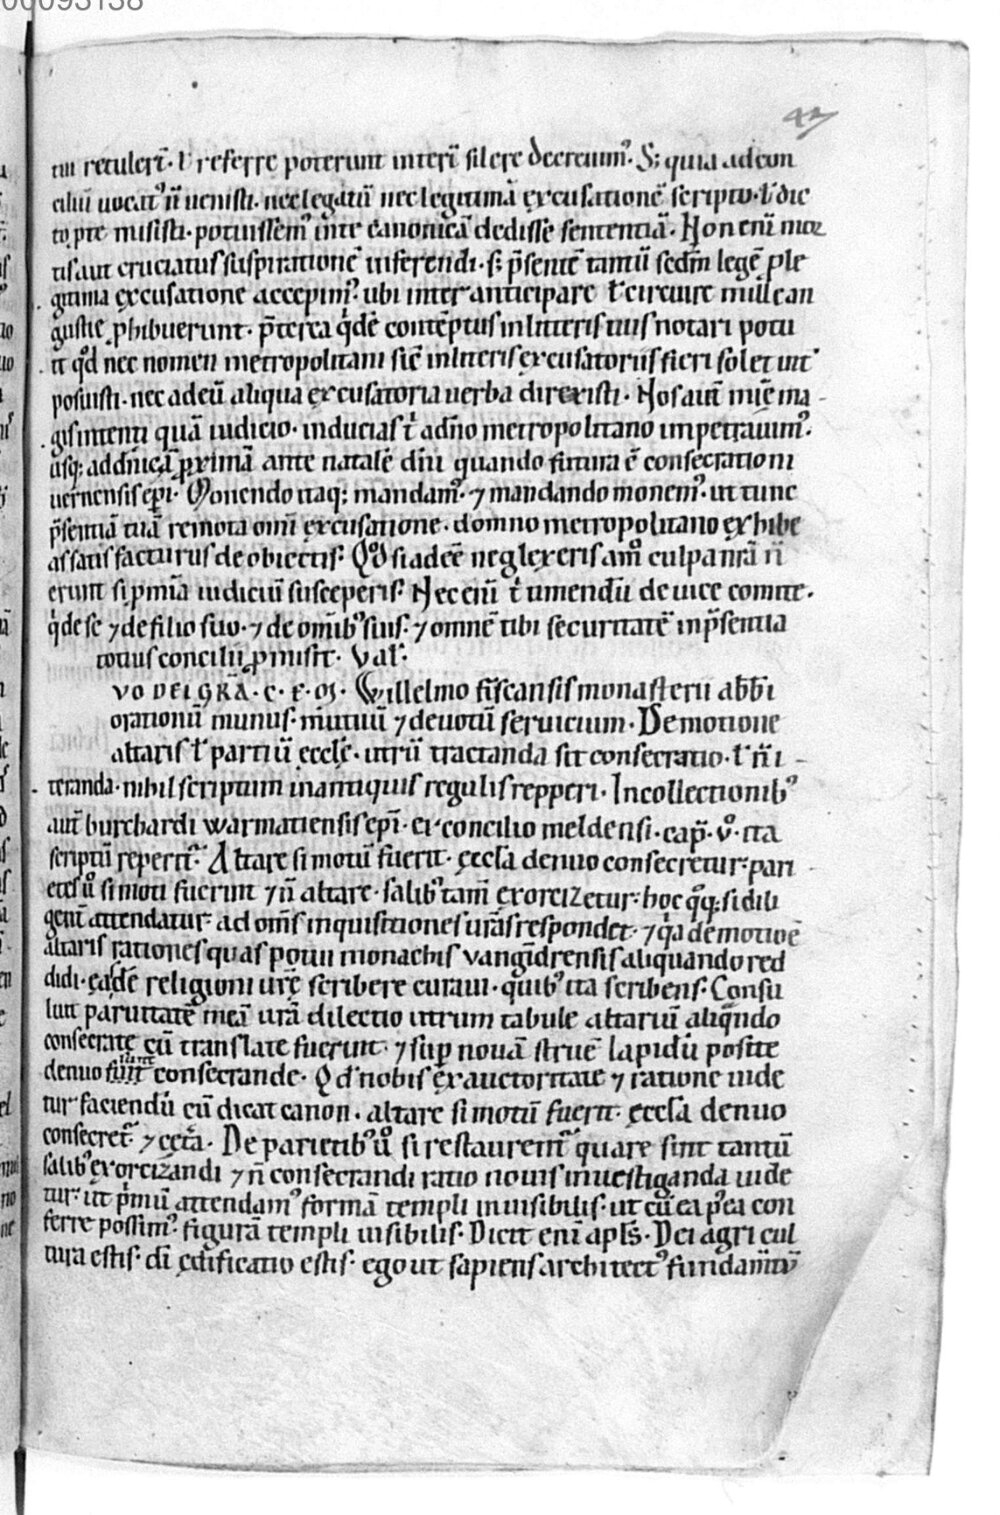 00093138
47
tui retuler̄t · ł referre poterunt interī silere decreuim᾿ · S; quia ad con
ciliū uocat᾿ n̄ uenisti · nec legatū nec legitimā excusationē scripto · ł dic
to p te misisti · potuissem᾿ in te canonicā dedisse sententiā · Non eni᷑ mor
tis aut cruciatus suspirationē inferendi · s; p̄sentē tantū sedm̄ legē ple
gitima excusatione accepim᾿ · ubi inter anticipare ł circuire mulle an
gustie phibuerunt · p̄terea q̇dē contēptus in litteris tuis notari potu
it qd̄ nec nomen metropolitani sic̄ in litteris excusatoriis fieri solet int᾿
posuisti · nec ad eū aliqua excusatoria uerba direxisti · Nos aut̄ mīe ma
gis intenti quā iudicio · inducias t̄ a dn̄o metropolitano impetrauim᾿ ·
usq; ad dn̄icā proximā ante natalē dn̄i quando futura ē consecratio ni
uernensis ep̄i · Monendo itaq; mandam᾿ · ⁊ mandando monem᾿ · ut tunc
p̄sentiā tuā remota om̄i excusatione · domno metropolitano exhibe
as satisfacturus de obiectis · Qd̊ si adeē neglexeris am̊ culpa nr̄a n̄
erunt si p mīa iudiciū susceperis · Nec enī t̄ timendū de uice comite ·
q̇ de se ⁊ de filio suo · ⁊ de om̄ib᾿ suis · ⁊ omnē tibi securitatē in p̄sentia
totius concilii promisit · Val᷑ ·
VO DEI GRĀ · C · E · M · Willelmo fiscansis monasterii abb̄i
orationū munus · mutuū ⁊ deuotū seruicium · De motione
altaris ł partiū eccl̄ę · utrū tractanda sit consecratio · ł n̄ i
teranda · nihil scriptum in antiquis regulis repperi · In collectionib᾿
aut̄ burchardi warmatiensis ep̄i · ex concilio meldensi · cap̄ · v̊ · ita
scriptū reperit᷑ · Altare si motū fuerit · eccl̄a denuo consecretur · pari
etes ů si moti fuerint ⁊ n̄ altare · salib᾿ tam̄ exorcizetur · hoc q̇q; si dili
gent̄ attendatur · ad om̄s inquisitiones urās respondet · ⁊ q̇a de motiōe
altaris rationes quas potui monachis vangidrensis aliquando red
didi · eądē religioni urę̄ scribere curaui · quib᾿ ita scribens · Consu
luit paruitatē meā urā dilectio utrum tabule altariū aliq̄ndo
consecratę cū translate fuerint · ⁊ sup nouā struē lapidū posite
denuo sint consecrande · Qd̄ nobis ex auctoritate ⁊ ratione uide
tur faciendū cū dicat canon · altare si motū fuerit eccl̄a denuo
consecret᷑ · ⁊ cęt̄a · De parietib᾿ ů si restaurent᷑ quare sint tantū
salib᾿ exorcizandi ⁊ n̄ consecrandi ratio nouis inuestiganda uide
tur · ut p̄mū attendam᾿ formā templi inuisibilis · ut cū ea p̄ea con
ferre possim᾿ figurā templi uisibilis · Dicit enī apl̄s · Dei agri cul
tura estis · dī ędificatio estis · ego ut sapiens architect᾿ fundam̄tū